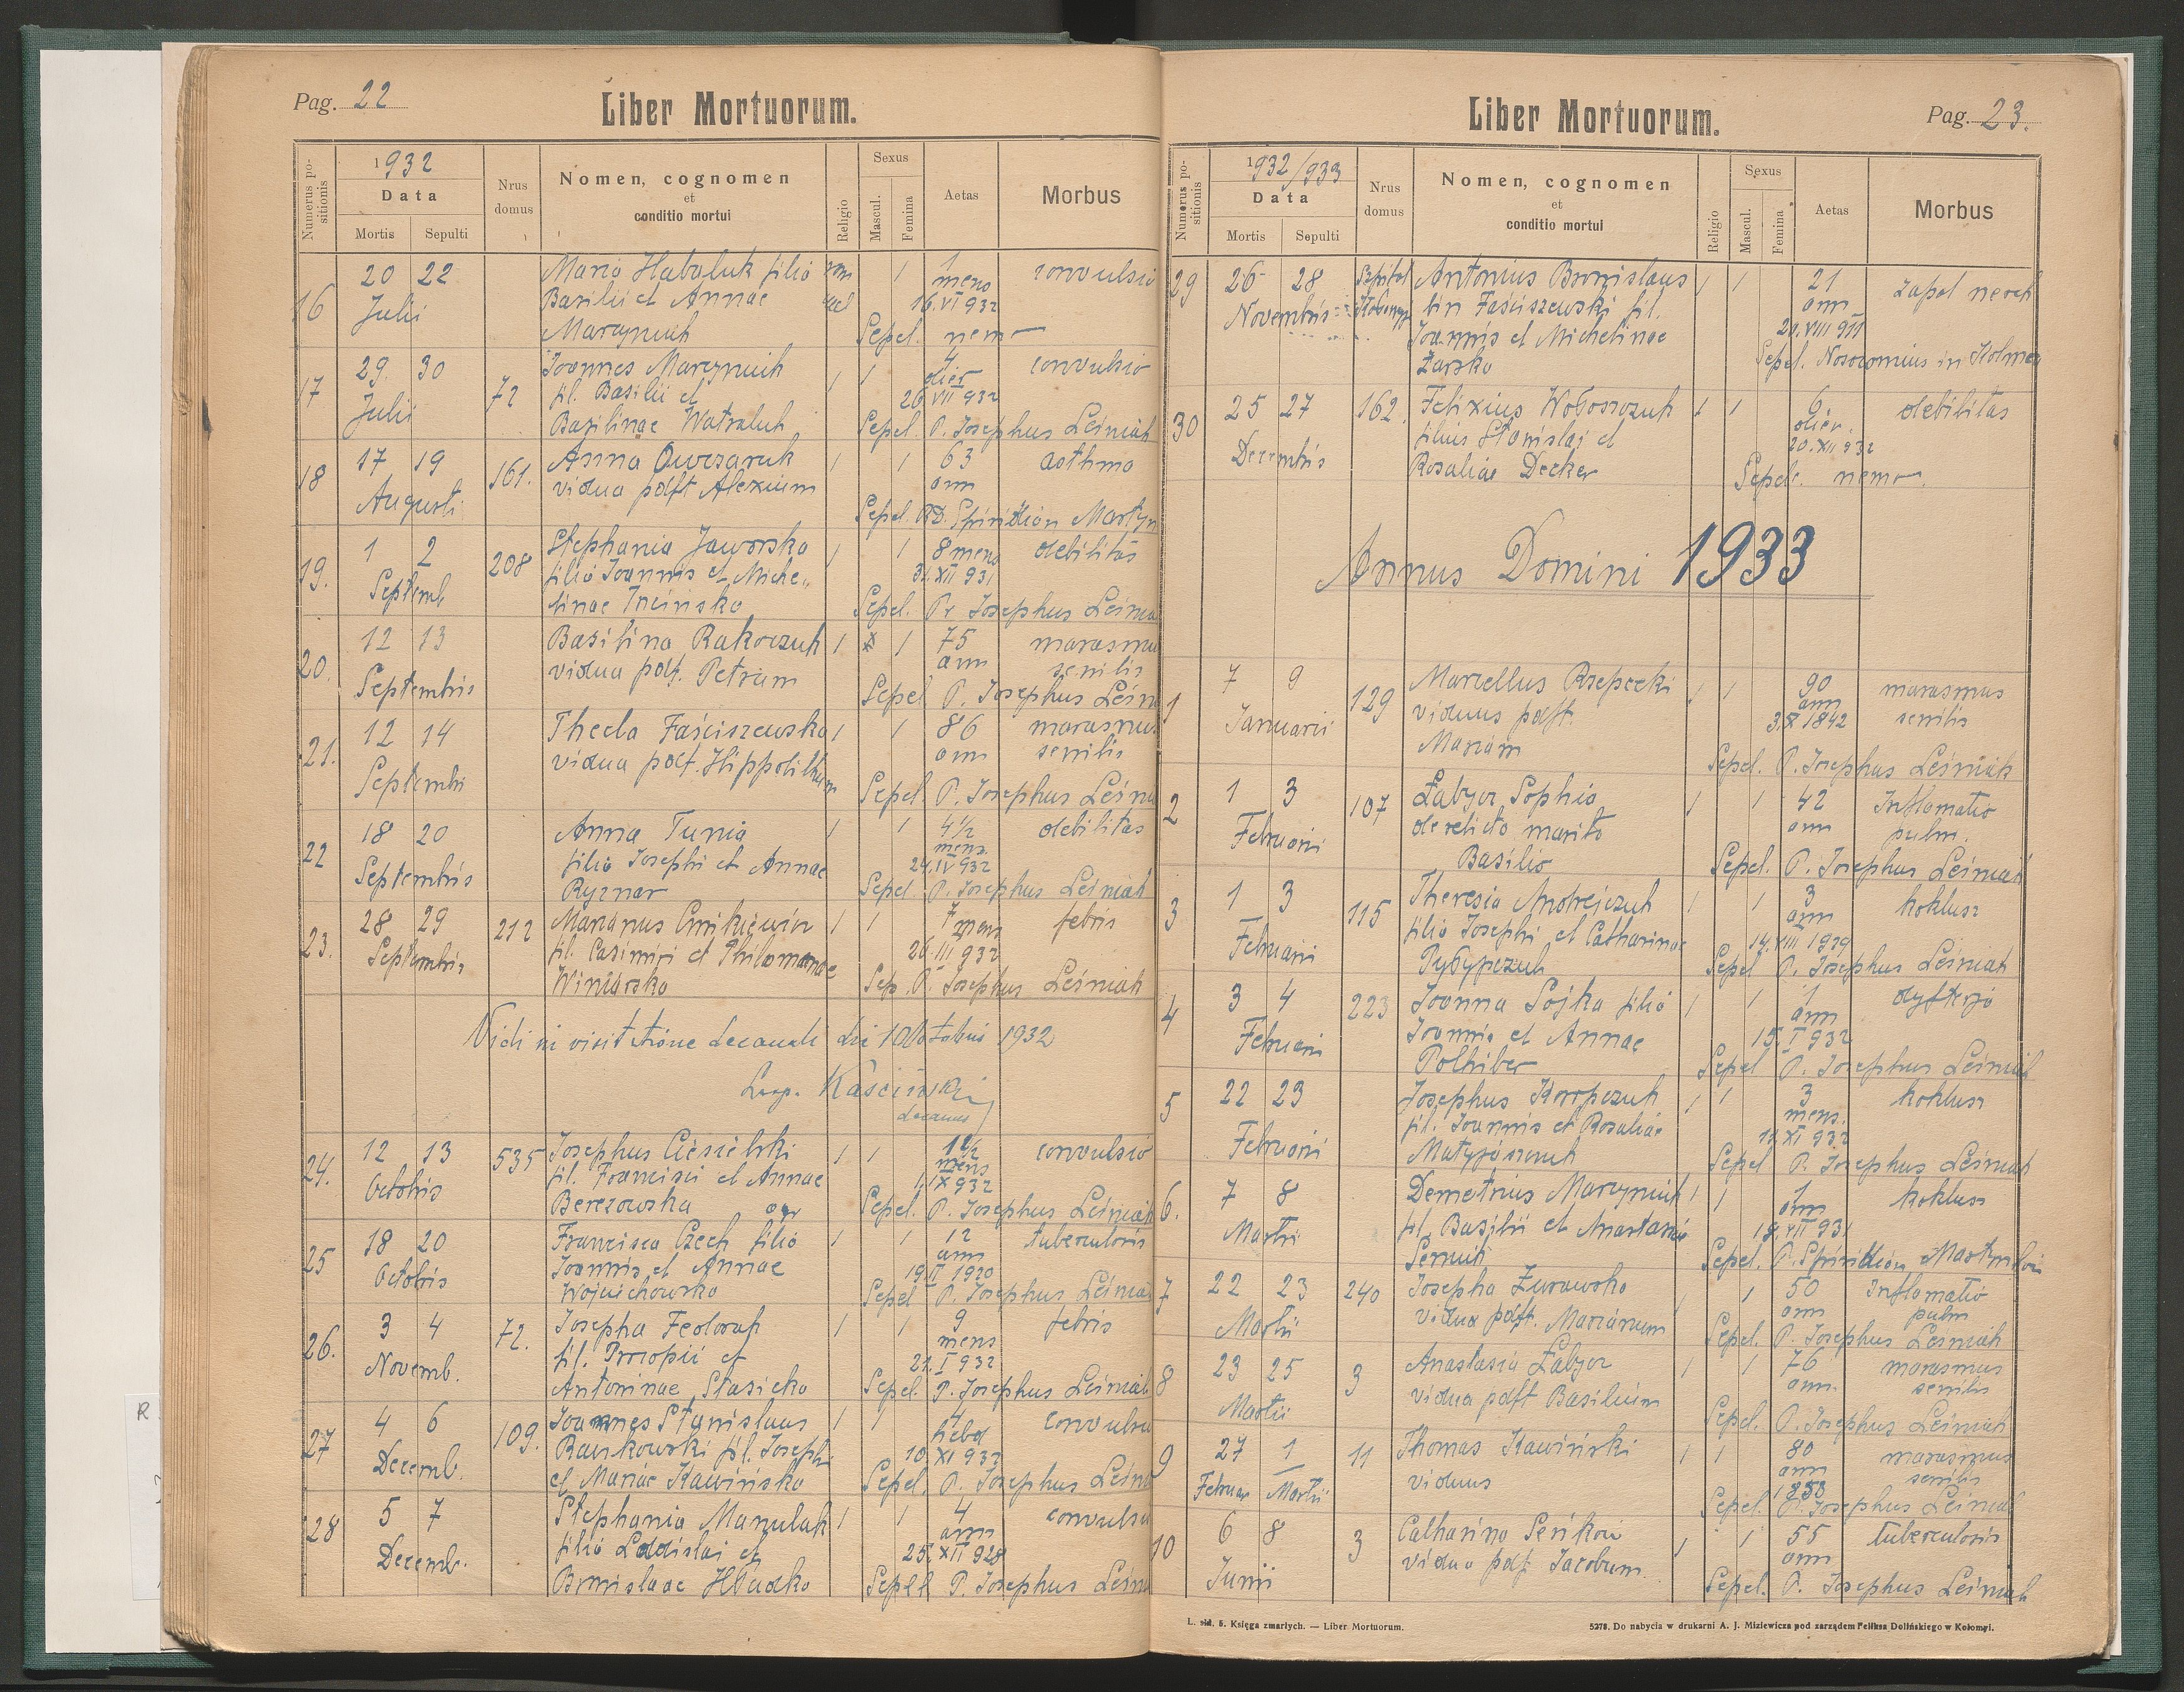 Pag. 22
Liber Mortuorum.
Numerus positionis
1932
Data
Mortis Sepulti
Nrus domus
Nomen, cognomen
et
conditio mortui
Religio
Sexus
Mascul. Femina
Aetas
Morbus
16 20 22 Julii Maria Habaluk filia rom 1 1 convulsio
Basilii et Annae cal mens 16.VI 932
Marcyniuk Sepel. nemo
17 29. 30 Julii 72 Joannes Marcyniuk 1 1 4 convulsio
fil. Basilii et dier 26 VII 932
Basilinae Watraluk Sepel. P. Josephus Leśniak
18 17 19 Augusti 161. Anna Owczaruk 1 1 63 asthma
vidua post Alexium ann
Sepel. RD. Spiridion Martyn
19. 1 2 Septemb 208 Stephania Jaworska 1 1 8 mens debilitas
filia Joannis et Miche- 31.XII 931
linae Sepel. Pr Josephus Leśnia
20. 12 13 Septembris Basilina Rakoczuk 1 1 75 marasmu
vidua post. Petrum ann senilis
Sepel P. Josephus Leśn
21. 12 14 Septembri Thecla Faściszewska 1 1 86 marasmus
vidua post. Hippolitum ann senilis
Sepel P. Josephus Leśn
22 18 20 Septembris Anna Tunia 1 1 4 1/2 debilitas
filia Josephi et Annae mens. 24.IV 932
Ryznar Sepel. P. Josephus Leśniak
23. 28 29 Septembris 212 Marianus 1 1 7 mens febris
fil. Casimiri et Philomenae 26.III 932
Winiarska Sep. P. Josephus Leśniak
Vidi in visitatione decanali die 10 Octobris 1932
Kaściński
decanus
24. 12 13 Octobris 535 Josephus Ciesielski 1 1 1 1/2 convulsio
fil. Francisci et Annae mens 1.IX 932
Berezowska Sepel. P. Josephus Leśniak
25 18 20 Octobris Francisca Czech filia 1 1 12 tuberculosis
Joannis et Annae ann 19.II 1920
Wojciechowska Sepel P. Josephus Leśnia
26. 3 4 Novemb. 72. Josepha 1 1 9 febris
fil. Procopii et mens 21.I 932
Antoninae Stasicka Sepel. P. Josephus Leśniak
27 4 6 Decemb. 109. Joannes Stanislaus 1 1 4 convulsio
fil. Josephi hebd 10.XI 932
et Mariae Kawińska Sepel. P. Josephus Leśn
28 5 7 Decemb. Stephania Manulak 1 1 4 convulsi
filia Ladislai et ann 25.XII 928
Bronislaae Hładka Sepel P. Josephus Leśn
Liber Mortuorum.
Pag. 23.
Numerus positionis
1932/933
Data
Mortis Sepulti
Nrus domus
Nomen, cognomen
et
conditio mortui
Religio
Sexus
Mascul. Femina
Aetas
Morbus
29 26 28 Novembris Szpital Antonius Bronislaus 1 1 21 zapal nerek
bin Faściszewski fil. ann 21.VIII 911
Joannis et Michelinae
Żarska Sepel. Nosocomius in Kolmea
30 25 27 Decembris 162. Felixius Woboszczuk 1 1 6 debilitas
filius Stanislai et dier. 20.XII 932
Rosaliae Decker Sepel. nemo.
Annus Domini 1933
1 7 9 Januarii 129 Marcellus Rzepecki 1 1 90 marasmus
viduus post. ann 3.X 1842 senilis
Mariam Sepel. P. Josephus Leśniak
2 1 3 Februarii 107 Łabycz Sophia 1 1 42 Inflamatio
derelicto marito ann pulm.
Basilio Sepel. P. Josephus Leśniak
3 1 3 Februarii 115 Theresia Andrejczuk 1 1 3 koklusz
filia Josephi et Catharinae ann 14.VIII 1929
Pybypczuk Sepel P. Josephus Leśniak
4 3 4 Februarii 223 Joanna Sojka filia 1 1 1 dyfterja
Joannis et Annae ann 15.I 932
Polhiber Sepel P. Josephus Leśniak
5 22 23 Februarii Josephus Korpczuk 1 1 3 koklusz
fil. Joannis et Rosaliae mens. 11.XI 932
Sepel P. Josephus Leśniak
6. 7 8 Martii Demetrius Marcyniuk 1 1 1 koklusz
fil. Basilii et Anastasiae ann 19.VII 931
Semiuk Sepel. P. Spiridion Martyn
7 22 23 Martii 240 Josepha Żurawska 1 1 50 Inflamatio
vidua post. Marianum ann pulm
Sepel. P. Josephus Leśniak
8 23 25 Martii 3 Anastasia Łabycz 1 1 76 marasmus
vidua post Basilium ann. senilis
Sepel. P. Josephus Leśniak
9 27 1 Februar Martii 11 Thomas Kawiński 1 1 80 marasmus
viduus ann 1853 senilis
Sepel. P. Josephus Leśniak
10 6 8 Junii 3 Catharina Seńkow 1 1 55 tuberculosis
vidua post. Jacobum. ann
Sepel. P. Josephus Leśniak
L. skł. 5. Księga zmarłych. — Liber Mortuorum.
5278. Do nabycia w drukarni A. J. Miziewicza pod zarządem Feliksa Dolińskiego w Kołomyi.
R